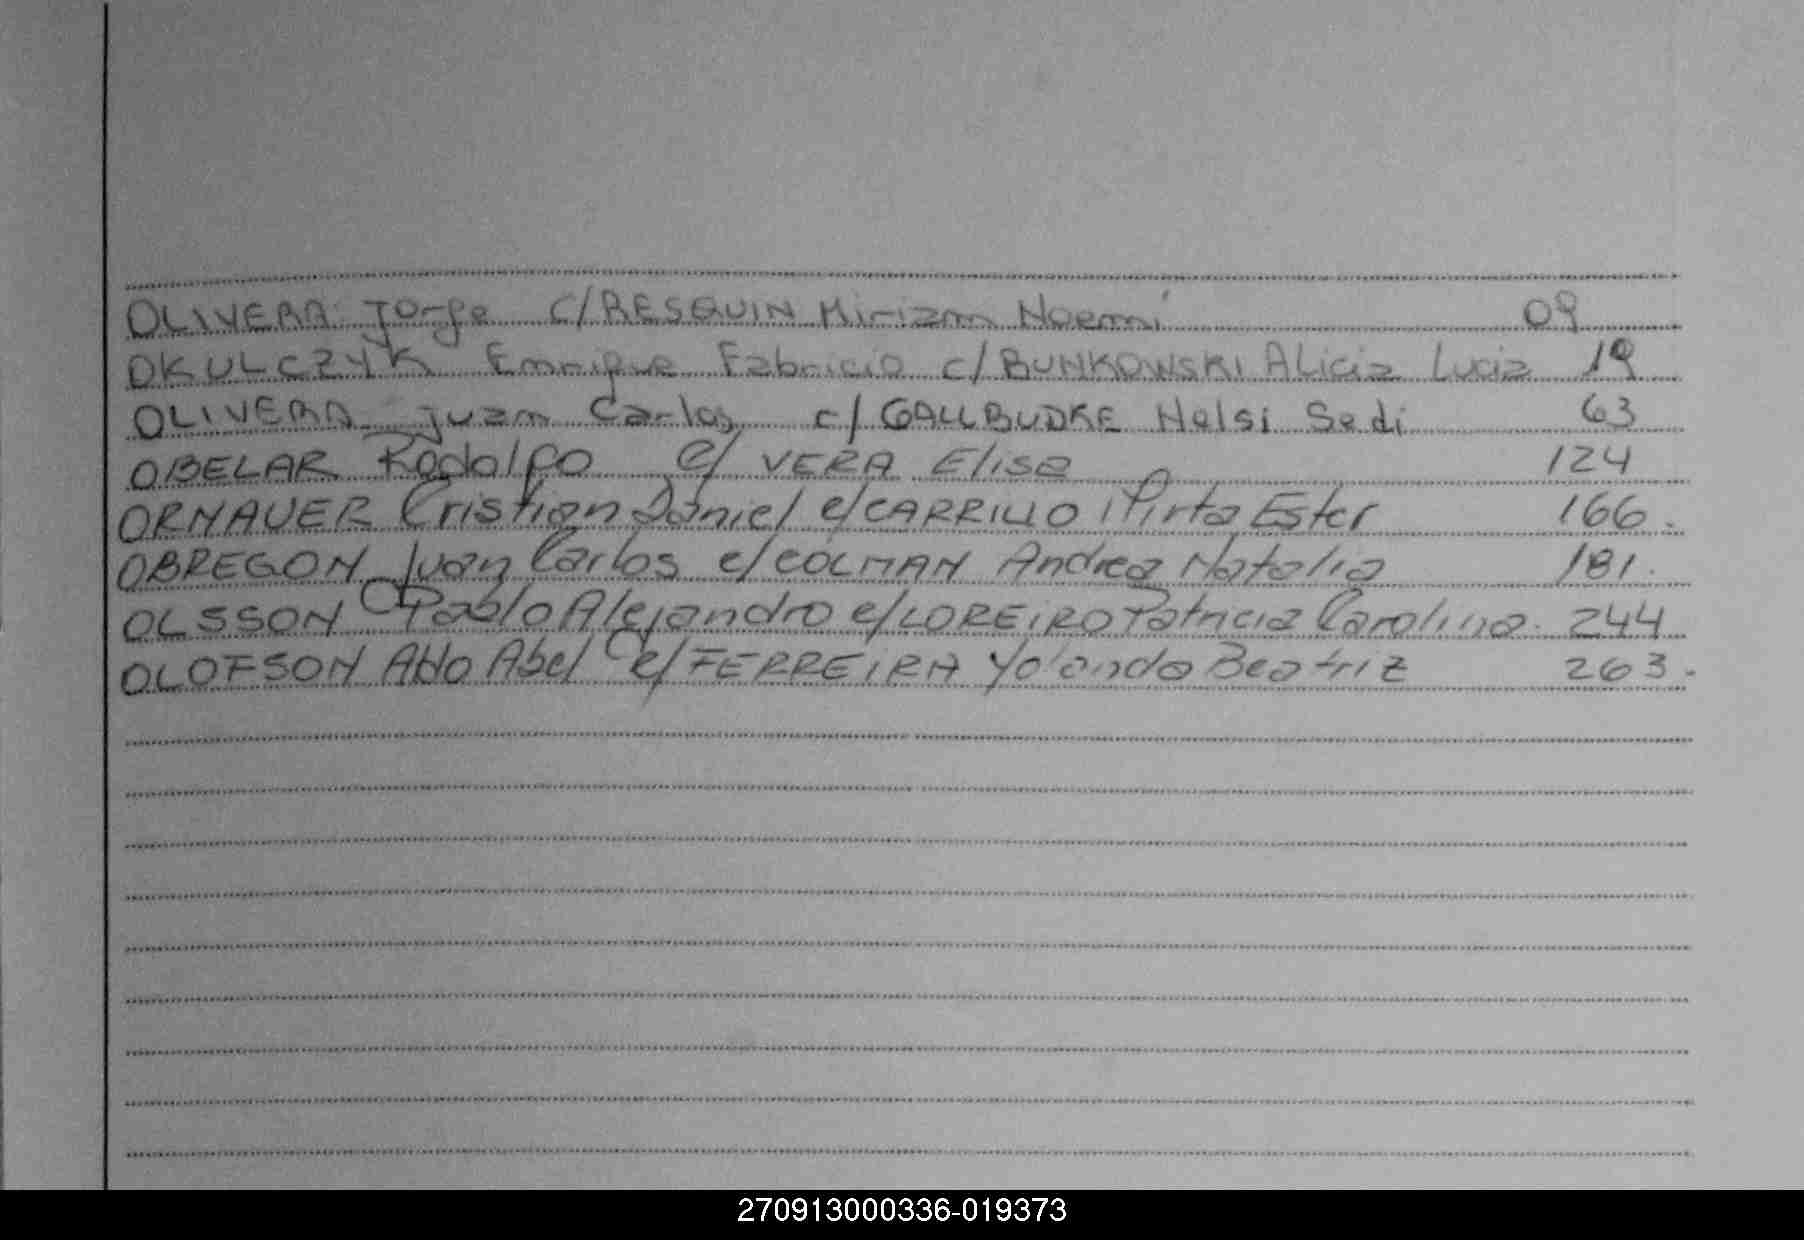 OLIVERA Jorge c/RESQUIN Miriam Noemi 09
OKULCZYK Enrrique Fabricio c/BUNKOWSKI Alicia Lucia 19
OLIVERA Juan Carlos c/ GALLBUDKE Nelsi Sedi 63
OBELAR Rodolfo c/ VERA Elisa 124
ORNAUER Cristian Daniel c/CARRILLO Mirta Ester 166.
OBREGON Juan Carlos c/COLMAN Andrea Natalia 181.
OLSSON Pablo Alejandro c/LOREIRO Patricia Carolina. 244
OLOFSON Aldo Abel c/FERREIRA Yolanda Beatriz 263.
270913000336-019373